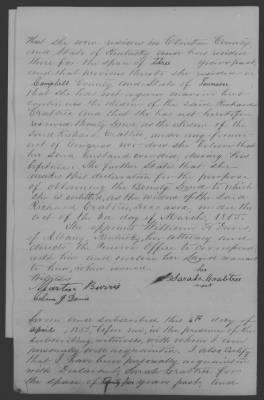 that she now resides in Clinton County
and State of Kentucky and has resided
there for the space of Three years past
and that previous thereto she resided in
Campbell County and State of Tennessee
that she has not again married but
continues the widow of the said Richard
Crabtree and that she has not heretofore
received Bounty Land as the widow of the
said Richard Crabtree under any former
act of Congress nor does she believe that
her said husband did during his
lifetime. She further states that she
makes this declaration for the purpose
of obtaining the Bounty Land to which
she is entitled, as the widow of the said
Richard Crabtree, deceased, under the
act of the 3rd day of March, 1855.
She appoints William Davis,
of Albany Kentucky, her attorney and
directs the Pension Office to correspond
with him and enclose her Land warrant
to him, when issued.
her
Witness
Sarah Crabtree
Martin Burris
mark
J Davis
Sworn and subscribed this 6th day of
April, 1855, before me, in the presence of the
subscribing witnesses, with whom I am
personally well acquainted. I also certify
that I have been personally acquainted
with Declarant Sarah Crabtree for
the space of years past, and